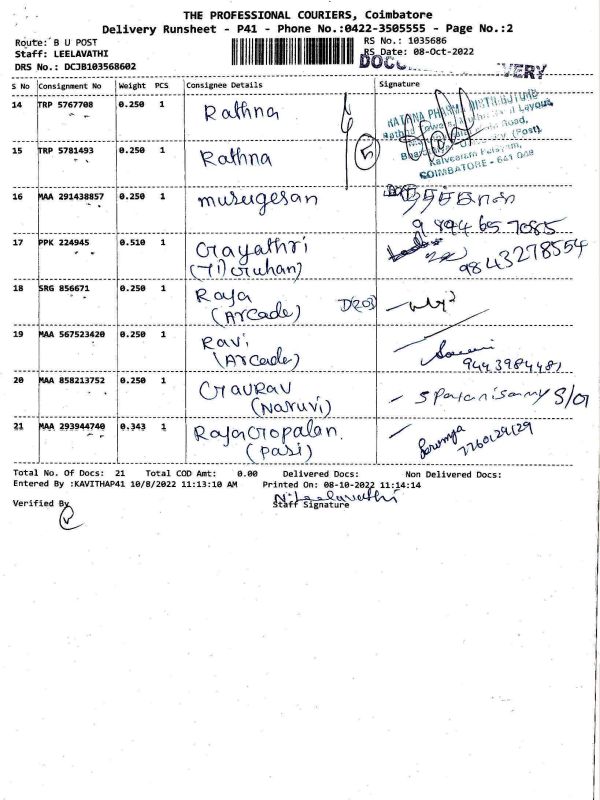 THE PROFESSIONAL COURIERS, Coimbatore
Delivery Runsheet - P41 - Phone No.:0422-3505555 - Page No.:2
Route: B U POST
RS No.: 1035686
Staff: LEELAVATHI
RS Date: 08-Oct-2022
DRS No.: DCJB103568602
S No Consignment No Weight PCS Consignee Details Signature
14 TRP 5767708 0.250 1 Rathna
RATNA PHARMA DISTRIBUTORS
COIMBATORE - 641 046
15 TRP 5781493 0.250 1 Rathna 5
16 MAA 291438857 0.250 1 murugesan
9894657085
17 PPK 224945 0.510 1 Gayathri
(Tiruhan) 9843278554
18 SRG 856671 0.250 1 Raja D(203)
(Arcade)
19 MAA 567523420 0.250 1 Ravi
(Arcade)
20 MAA 858213752 0.250 1 Gaurav
(Naruvi)
S Palanisamy S/O
21 MAA 293944740 0.343 1 RajaGopalan.
(pasi)
Total No. Of Docs: 21 Total COD Amt: 0.00 Delivered Docs: Non Delivered Docs:
Entered By :KAVITHAP41 10/8/2022 11:13:10 AM Printed On: 08-10-2022 11:14:14
N. Leelavathi
Verified By
Staff Signature